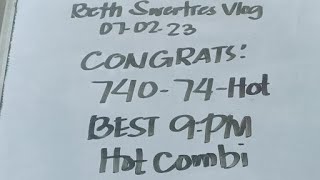 Beth Swertres Vlog
07-02-23
CONGRATS:
740-74-Hot
BEST 9-PM
Hot Combi